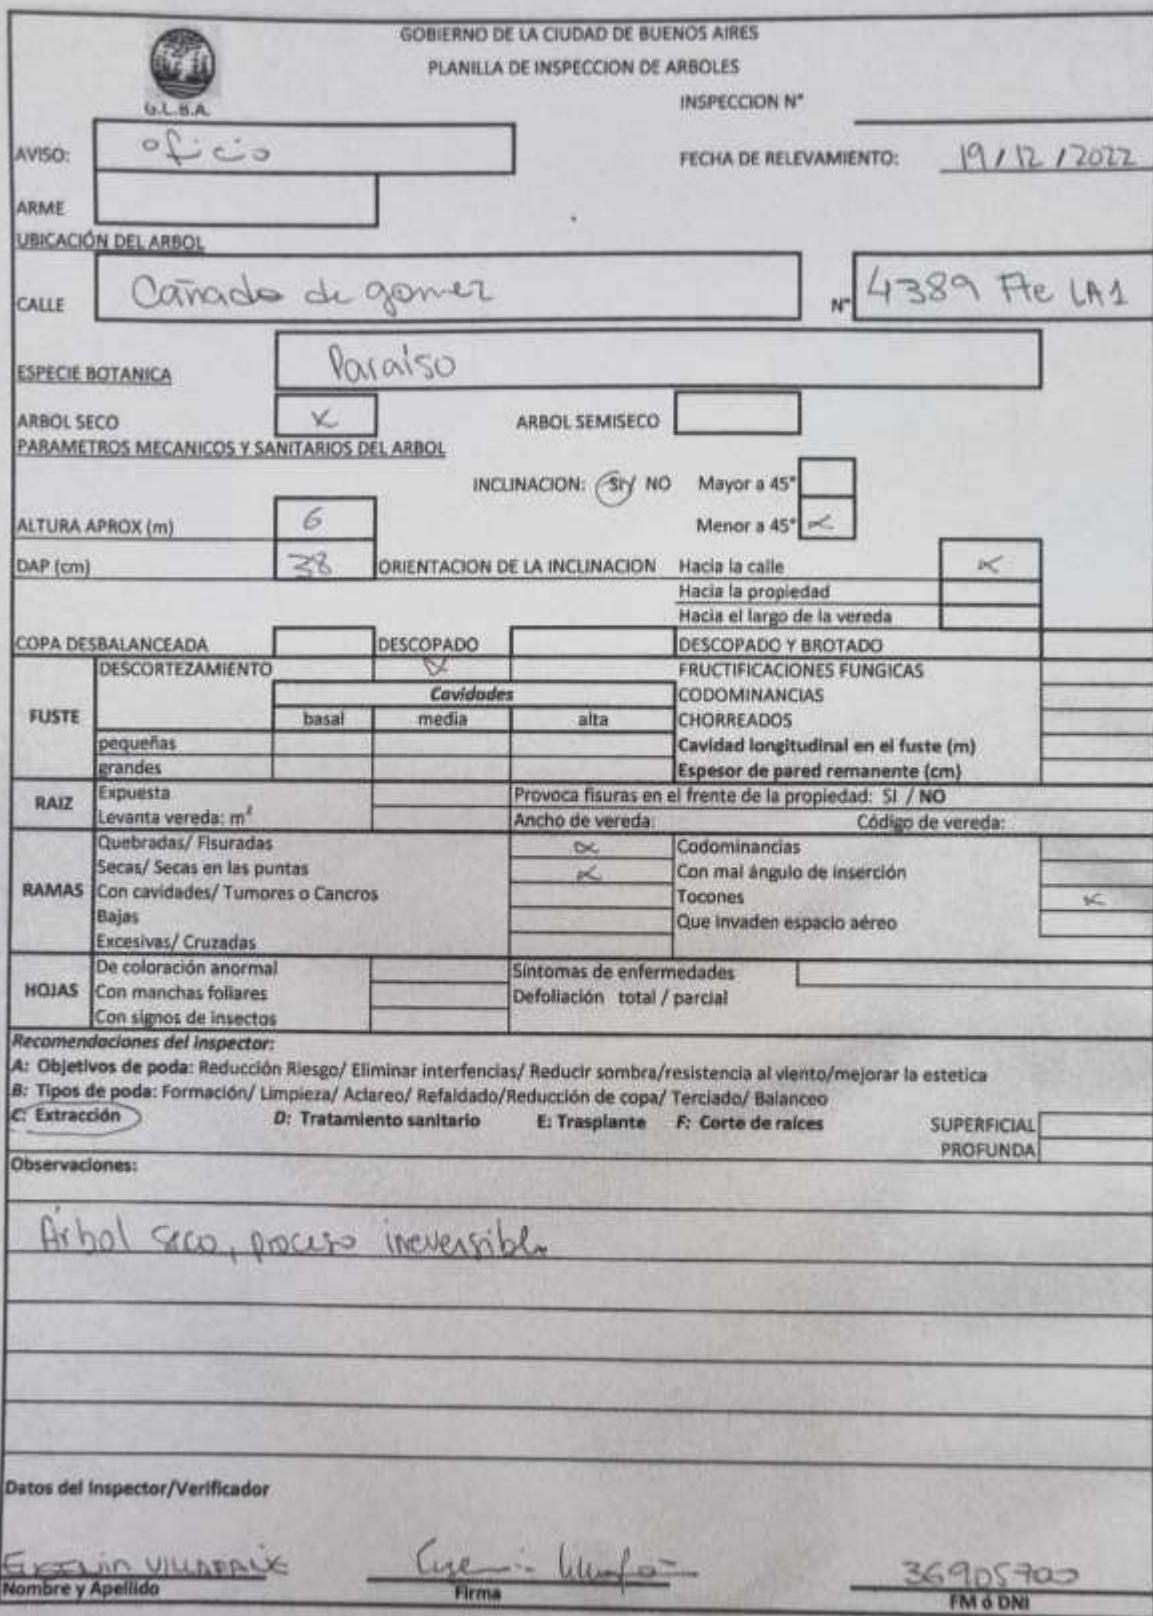 GOBIERNO DE LA CIUDAD DE BUENOS AIRES
PLANILLA DE INSPECCION DE ARBOLES
G.C.B.A.
INSPECCION N°
AVISO: oficio FECHA DE RELEVAMIENTO: 19/12/2022
ARME
UBICACIÓN DEL ARBOL
CALLE Cañada de gomez N° 4389 Fte LA1
ESPECIE BOTANICA Paraíso
ARBOL SECO X ARBOL SEMISECO
PARAMETROS MECANICOS Y SANITARIOS DEL ARBOL
INCLINACION: SI/ NO Mayor a 45°
ALTURA APROX (m) 6 Menor a 45° X
DAP (cm) 38 ORIENTACION DE LA INCLINACION Hacia la calle X
Hacia la propiedad
Hacia el largo de la vereda
COPA DESBALANCEADA DESCOPADO DESCOPADO Y BROTADO
DESCORTEZAMIENTO X FRUCTIFICACIONES FUNGICAS
Cavidades CODOMINANCIAS
FUSTE basal media alta CHORREADOS
pequeñas Cavidad longitudinal en el fuste (m)
grandes Espesor de pared remanente (cm)
RAIZ Expuesta Provoca fisuras en el frente de la propiedad: SI / NO
Levanta vereda: m² Ancho de vereda: Código de vereda:
Quebradas/ Fisuradas X Codominancias
Secas/ Secas en las puntas X Con mal ángulo de inserción
RAMAS Con cavidades/ Tumores o Cancros Tocones X
Bajas Que invaden espacio aéreo
Excesivas/ Cruzadas
De coloración anormal Síntomas de enfermedades
HOJAS Con manchas foliares Defoliación total / parcial
Con signos de insectos
Recomendaciones del inspector:
A: Objetivos de poda: Reducción Riesgo/ Eliminar interfencias/ Reducir sombra/resistencia al viento/mejorar la estetica
B: Tipos de poda: Formación/ Limpieza/ Aclareo/ Refaldado/Reducción de copa/ Terciado/ Balanceo
C: Extracción D: Tratamiento sanitario E: Trasplante F: Corte de raíces SUPERFICIAL
PROFUNDA
Observaciones:
Árbol seco, proceso irreversible
Datos del Inspector/Verificador
EUGENIA VILLAFAÑE 36905700
Nombre y Apellido Firma FM ó DNI